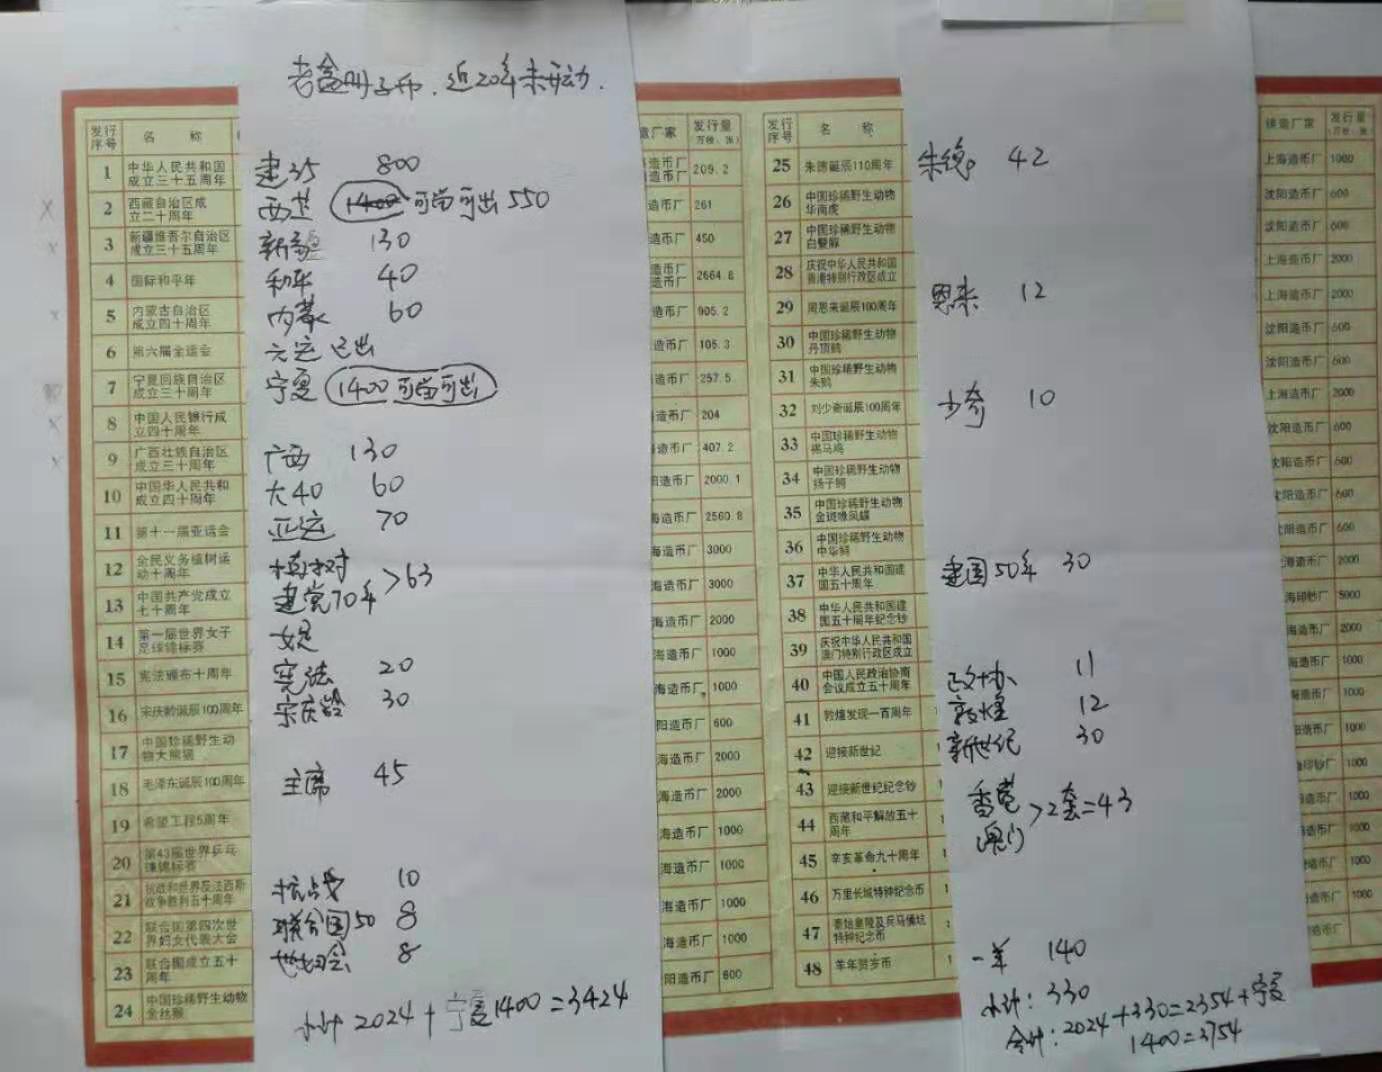 老盒册子币.近20年未开动.
发行序号 名 称
1 中华人民共和国成立三十五周年
2 西藏自治区成立二十周年
3 新疆维吾尔自治区成立三十五周年
4 国际和平年
5 内蒙古自治区成立四十周年
6 第六届全运会
7 宁夏回族自治区成立三十周年
8 中国人民银行成立四十周年
9 广西壮族自治区成立三十周年
10 中国华人民共和成立四十周年
11 第十一届亚运会
12 全民义务植树运动十周年
13 中国共产党成立七十周年
14 第一届世界女子足球锦标赛
15 宪法颁布十周年
16 宋庆龄诞辰100周年
17 中国珍稀野生动物大熊猫
18 毛泽东诞辰100周年
19 希望工程5周年
20 第43届世界乒乓球锦标赛
21 抗战和世界反法西斯战争胜利五十周年
22 联合国第四次世界妇女代表大会
23 联合国成立五十周年
24 中国珍稀野生动物金丝猴
建35 800
西芷 1400 可当可出 550
新疆 130
和平 40
内蒙 60
六运 已出
宁夏 1400 可当可出
广西 130
大40 60
亚运 70
植树
建党70年 >63
女足
宪法 20
宋庆龄 30
主席 45
抗战 10
联合国50 8
世妇会 8
小计 2024 + 宁夏1400 = 3424
造厂家 发行量(万枚、张)
造币厂 造币厂 209.2
造币厂 261
造币厂 450
造币厂 造币厂 2664.8
造币厂 905.2
造币厂 105.3
造币厂 257.5
造币厂 204
造币厂 407.2
造币厂 2000.1
海造币厂 2560.8
海造币厂 3000
海造币厂 3000
海造币厂 2000
海造币厂 1000
海造币厂 1000
阳造币厂 600
海造币厂 2000
海造币厂 2000
海造币厂 1000
海造币厂 1000
海造币厂 1000
海造币厂 1000
阳造币厂 600
发行序号 名 称
25 朱德诞辰110周年
26 中国珍稀野生动物华南虎
27 中国珍稀野生动物白鳖豚
28 庆祝中华人民共和国香港特别行政区成立
29 周恩来诞辰100周年
30 中国珍稀野生动物丹顶鹤
31 中国珍稀野生动物朱鹮
32 刘少奇诞辰100周年
33 中国珍稀野生动物褐马鸡
34 中国珍稀野生动物扬子鳄
35 中国珍稀野生动物金斑喙凤蝶
36 中国珍稀野生动物中华鲟
37 中华人民共和国建国五十周年
38 中华人民共和国建国五十周年纪念钞
39 庆祝中华人民共和国澳门特别行政区成立
40 中国人民政治协商会议成立五十周年
41 敦煌发现一百周年
42 迎接新世纪
43 迎接新世纪纪念钞
44 西藏和平解放五十周年
45 辛亥革命九十周年
46 万里长城特种纪念币
47 秦始皇陵及兵马俑坑特种纪念币
48 羊年贺岁币
朱德 42
恩来 12
少奇 10
建国50年 30
政协 11
敦煌 12
新世纪 30
香港
澳门 >2套=43
一羊 140
小计: 330
合计: 2024+330=2354+宁夏
1400=3754
铸造厂家 发行量(万枚、张)
上海造币厂 1000
沈阳造币厂 600
沈阳造币厂 600
上海造币厂 2000
上海造币厂 2000
沈阳造币厂 600
沈阳造币厂 600
上海造币厂 2000
沈阳造币厂 600
沈阳造币厂 600
沈阳造币厂 600
阳造币厂 600
海造币厂 2000
海印钞厂 5000
海造币厂 2000
海造币厂 1000
海造币厂 1000
造币厂 1000
印钞厂 1000
造币厂 1000
造币厂 1000
造币厂 1000
造币厂 1000
造币厂